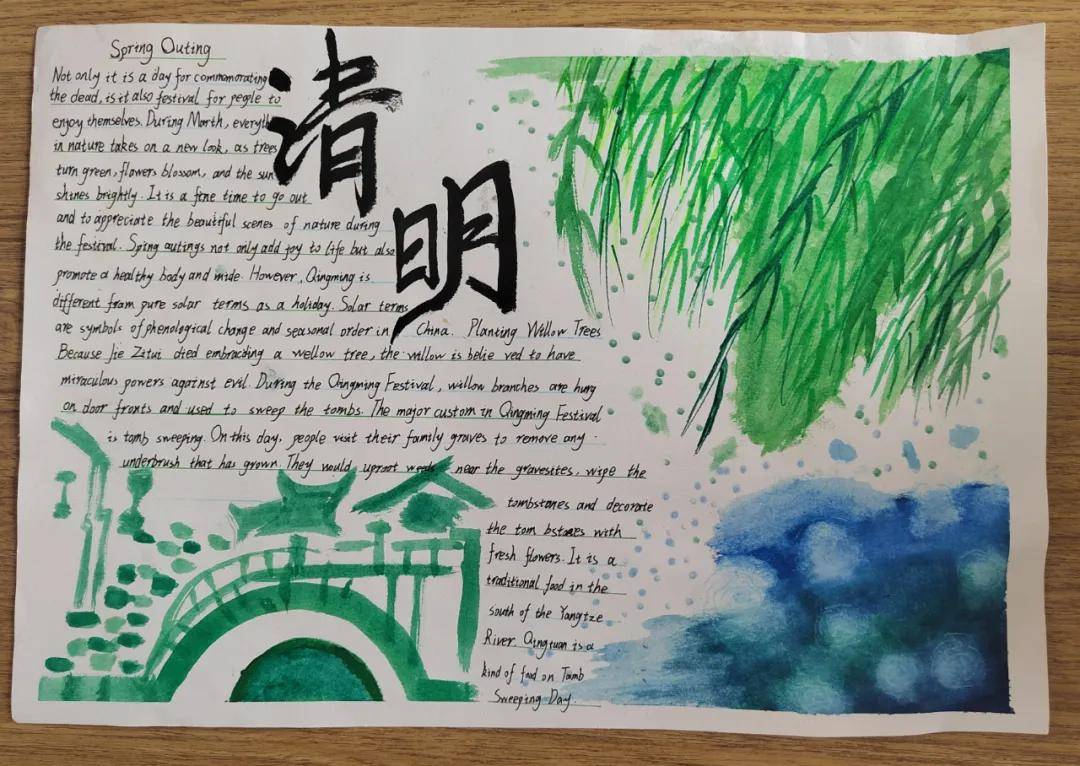 Spring Outing
清明
Not only it is a day for commemorating
the dead, is it also festival for pegle to
enjoy themselves. During Marth, everyth
in nature takes on a new look, as trees
turn green, flowers blossom, and the sun
shines brightly. It is a fine time to go out
and to appreciate the beautiful scenes of nature during
the festival. Sping outings not only add joy to life but also
promote a healthy body and mide. However, Qingming is
different from pure solar terms as a holiday. Solar terms
are symbols of phenological change and seasonal order in China. Planting Willow Trees
Because Jie Zitui died embracding a wellow tree, the willow is belie ved to have
miraculous powers against evil. During the Qingming Festival, willow branches are hung
on door fronts and used to sweep the tombs. The major custom in Qingming Festival
is tomb sweeping. On this day, people visit their family graves to remove any
underbrush that has grown. They would uproot weeds near the gravesites, wipe the
tombstones and decorate
the tom bstones with
fresh flowers. It is a
traditional food in the
south of the Yangtze
River. Qingtuan is a
kind of food on Tomb
Sweeping Day.